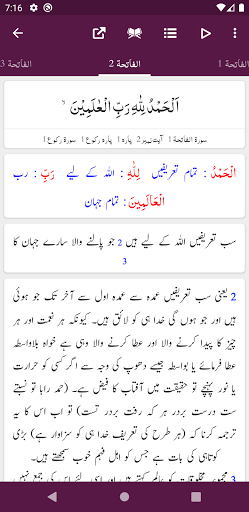 7:16
الفاتحة 1
الفاتحة 2
الفاتحة 3
اَلْحَمْدُ لِلّٰهِ رَبِّ الْعٰلَمِيْنَ ۙ
سورۃ الفاتحۃ 1 آیت نمبر 2 پارہ 1 پارہ رکوع 1 سورۃ رکوع 1
اَلْحَمْدُ : تمام تعریفیں لِلّٰہِ : اللہ کے لیے رَبِّ : رب
الْعَالَمِينَ : تمام جہان
سب تعریفیں اللہ کے لیے ہیں 2 جو پالنے والا سارے جہان کا
3
2 یعنی سب تعریفیں عمدہ سے عمدہ اول سے آخر تک جو ہوئی
ہیں اور جو ہوں گی خدا ہی کو لائق ہیں۔ کیونکہ ہر نعمت اور ہر
چیز کا پیدا کرنے والا اور عطا کرنے والا وہی ہے خواہ بلاواسطہ
عطا فرمائے یا بواسطہ جیسے دھوپ کی وجہ سے اگر کسی کو حرارت
یا نور پہنچے تو حقیقت میں آفتاب کا فیض ہے۔ (حمد را با تو نسبتے
ست درست بردر ہر کہ رفت بردر تست) تو اب اس کا یہ
ترجمہ کرنا کہ (ہر طرح کی تعریف خدا ہی کو سزاوار ہے) بڑی
کوتاہی کی بات ہے جس کو اہل فہم خوب سمجھتے ہیں۔